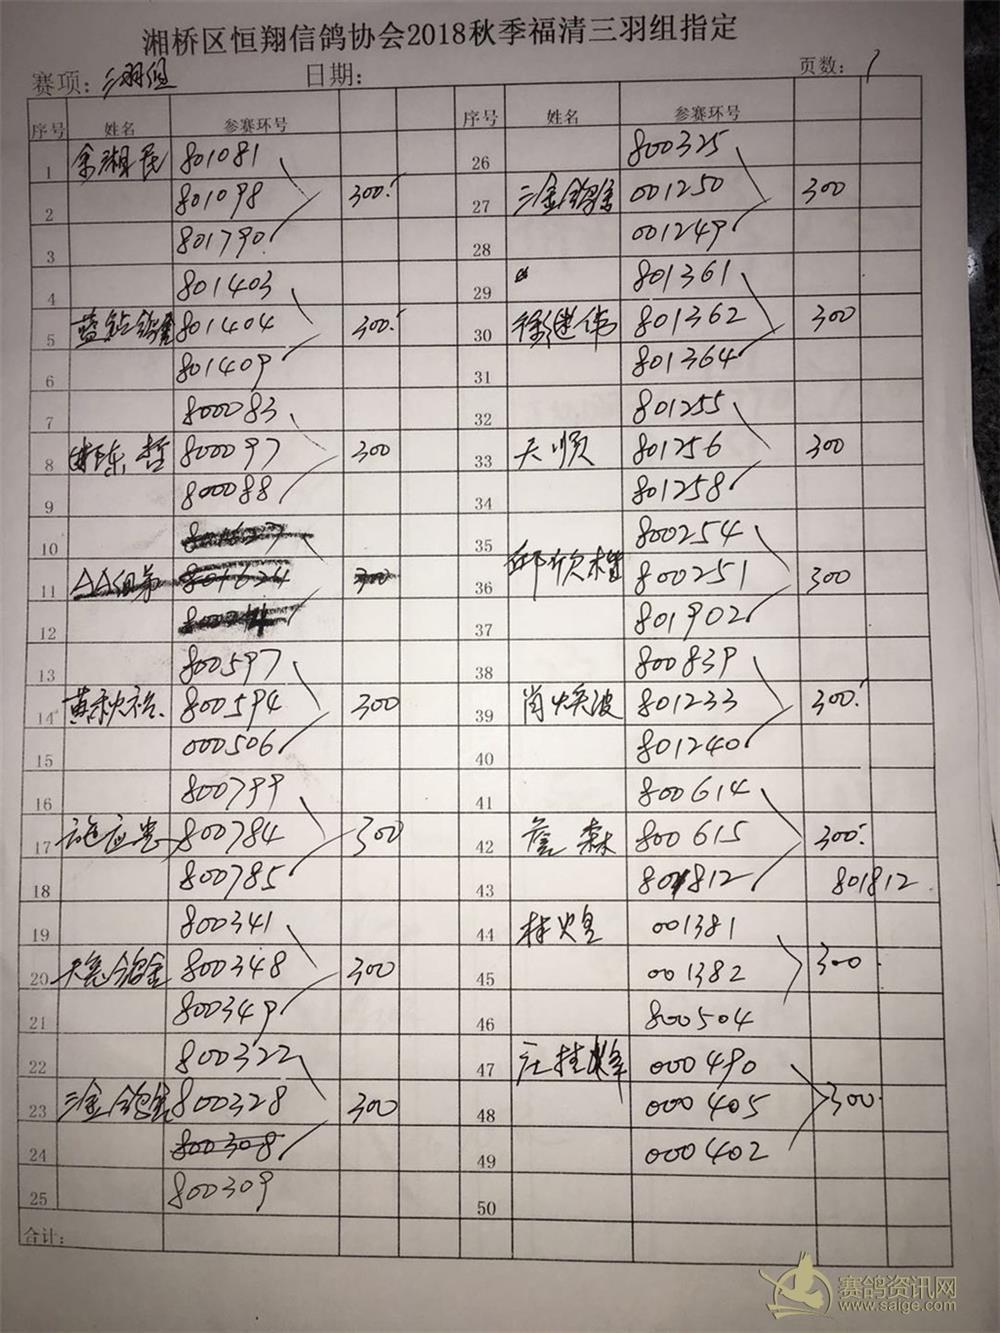 湘桥区恒翔信鸽协会2018秋季福清三羽组指定
赛项: 三羽组 日期: 页数: 1
序号 姓名 参赛环号 序号 姓名 参赛环号
1 余湘民 801081 26 800325
2 801098 300. 27 三金鸽舍 001250 300
3 801790 28 001249
4 801403 29 801361
5 蓝钻鸽舍 801404 300. 30 徐继伟 801362 300
6 801409 31 801364
7 800083 32 801255
8 陈哲 800097 300 33 天顺 801256 300
9 800088 34 801258
10 35 800254
11 AA组弟 801624 300 36 800251 300
12 37 801902
13 800597 38 800839
14 黄秋裕. 800594 300 39 肖焕波 801233 300.
15 000506 40 801240
16 800799 41 800614
17 800784 300 42 詹森 800615 300.
18 800785 43 801812 801812
19 800341 44 林火皇 001381
20 天亮鸽舍 800348 300 45 001382 300
21 800349 46 800504
22 800322 47 庄桂峰 000490
23 三金鸽舍 800328 300 48 000405 300.
24 800308 49 000402
25 800309 50
合计:
赛鸽资讯网
www.saige.com